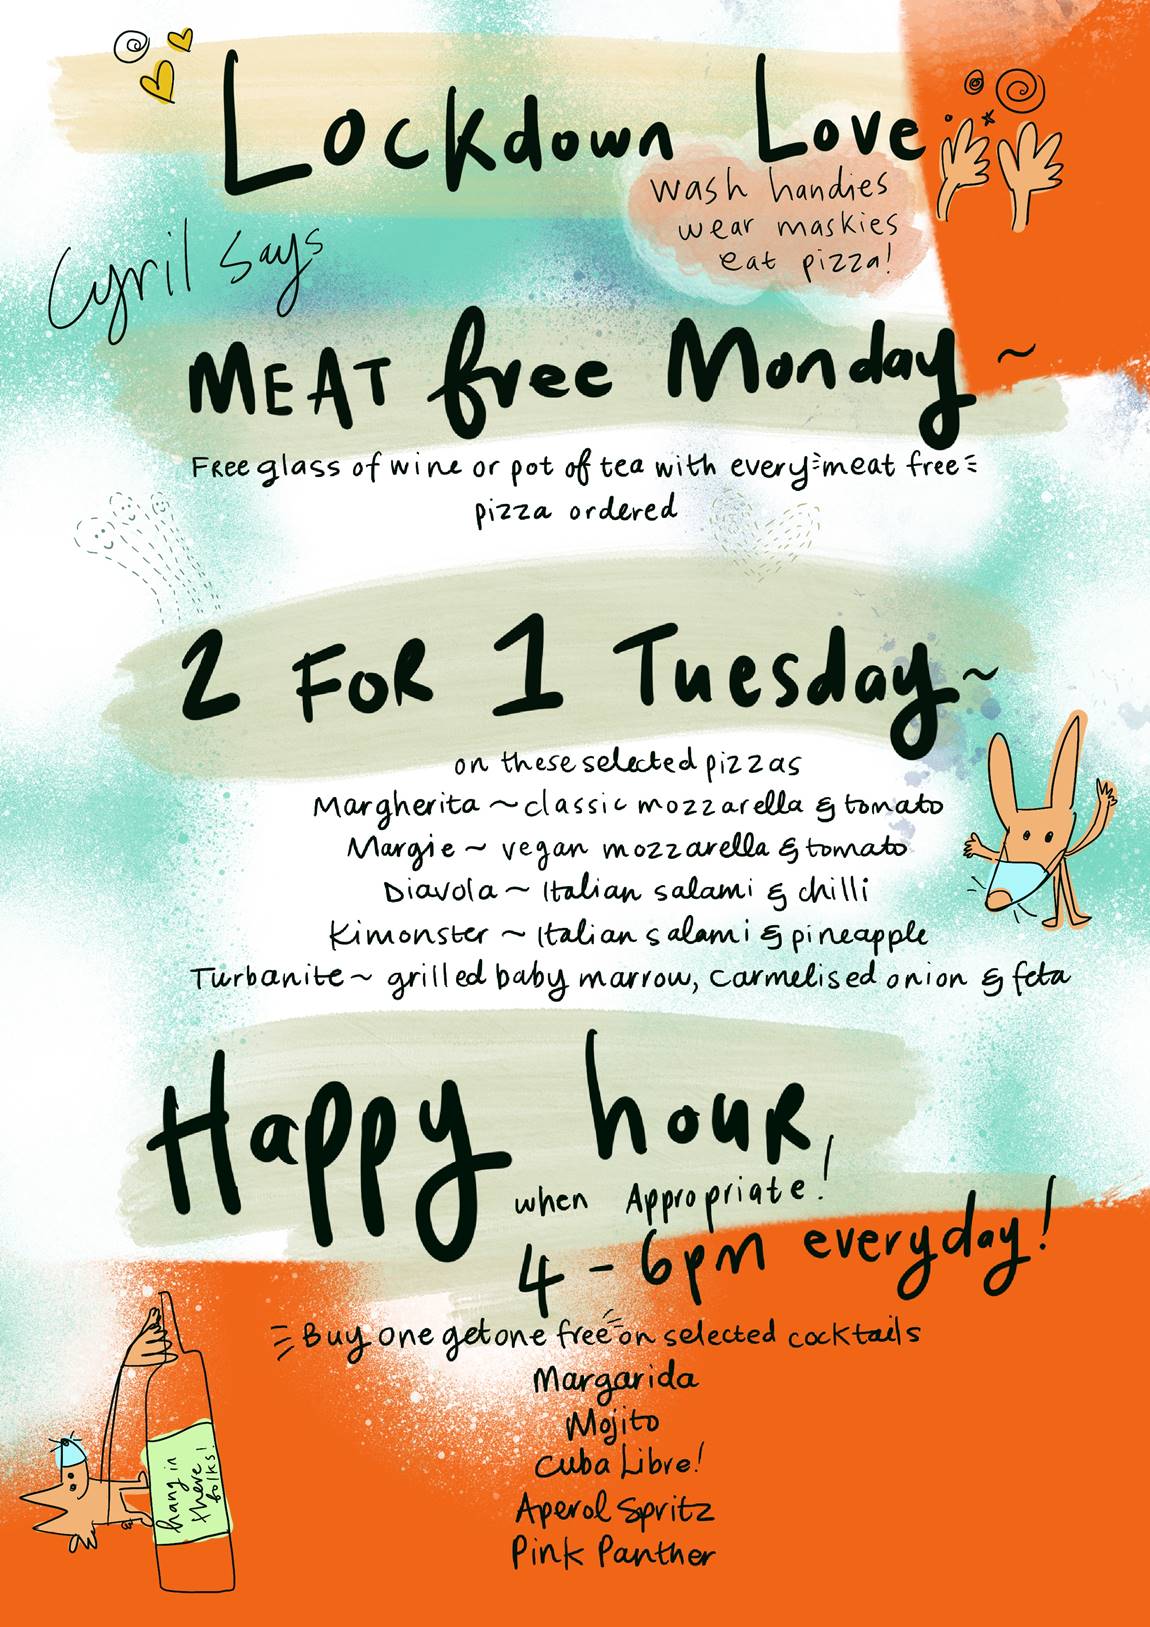 Lockdown Love
wash handies
wear maskies
eat pizza!
Cyril says
MEAT free Monday ~
Free glass of wine or pot of tea with every meat free
pizza ordered
2 FOR 1 Tuesday ~
on these selected pizzas
Margherita ~ classic mozzarella & tomato
Margie ~ vegan mozzarella & tomato
Diavola ~ Italian salami & chilli
Kimonster ~ Italian salami & pineapple
Turbanite ~ grilled baby marrow, carmelised onion & feta
Happy hour
when Appropriate!
4 - 6pm everyday!
Buy one get one free on selected cocktails
Margarida
Mojito
Cuba Libre!
Aperol Spritz
Pink Panther
hang in
there
folks!